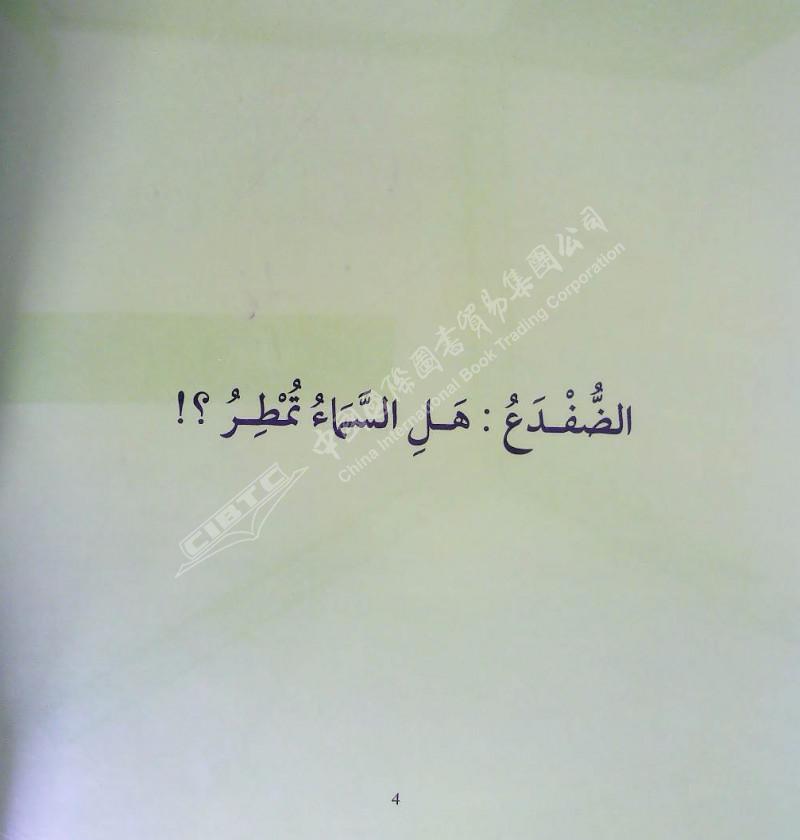 中国国际圖書貿易集團公司
China International Book Trading Corporation
CIBTC
الضُّفْدَعُ : هَلِ السَّمَاءُ تُمْطِرُ ؟!
4